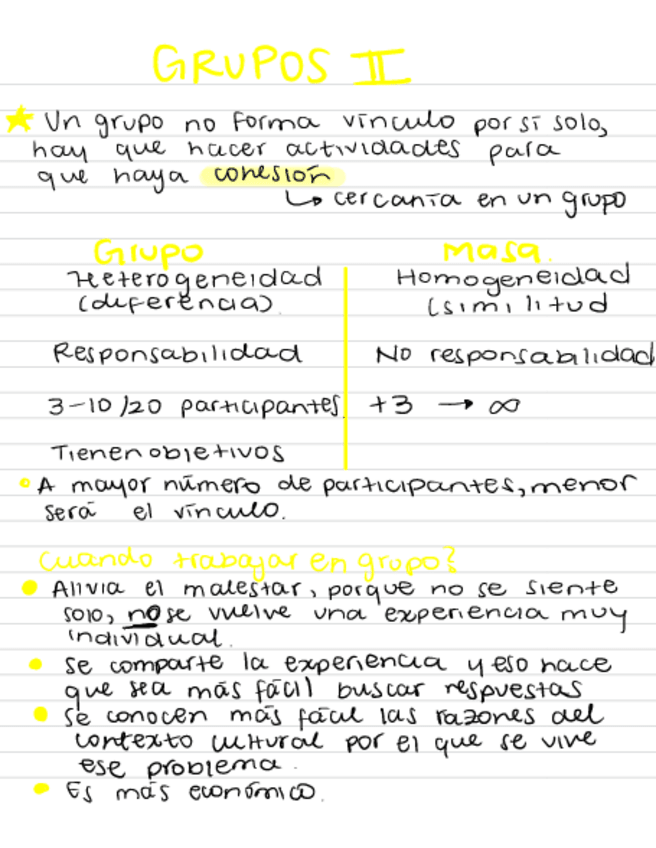 GRUPOS II
Un grupo no forma vínculo por sí solo,
hay que hacer actividades para
que haya cohesión
↳ cercanía en un grupo
Grupo
Masa.
Heterogeneidad
(diferencia).
Homogeneidad
(similitud
Responsabilidad
No responsabilidad
3-10/20 participantes
+3 → ∞
Tienen objetivos
A mayor número de participantes, menor
será el vínculo.
Cuando trabajar en grupo?
Alivia el malestar, porque no se siente
solo, no se vuelve una experiencia muy
individual.
Se comparte la experiencia y eso hace
que sea más fácil buscar respuestas
Se conocen más fácil las razones del
contexto cultural por el que se vive
ese problema.
Es más económico.